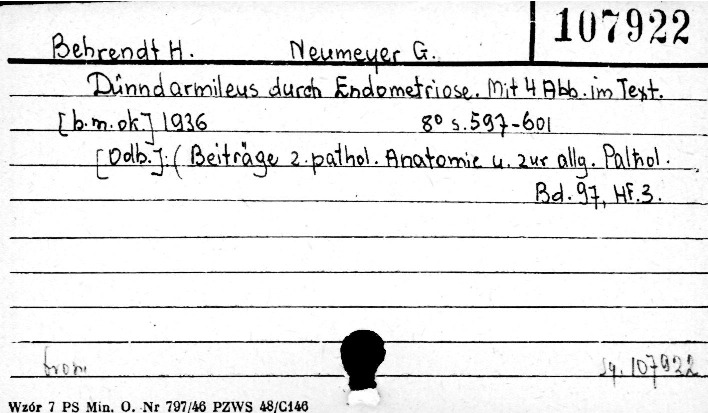 107922
Behrendt H. Neumeyer G.
Dünndarmileus durch Endometriose. Mit 4 Abb. im Text.
[b.m.ok.] 1936 8° s. 597-601
[Odb.]: (Beiträge z. pathol. Anatomie u. zur allg. Pathol.
Bd. 97, Hf. 3.
brosz. sq. 107922
Wzór 7 PS Min. O. Nr 797/46 PZWS 48/C146